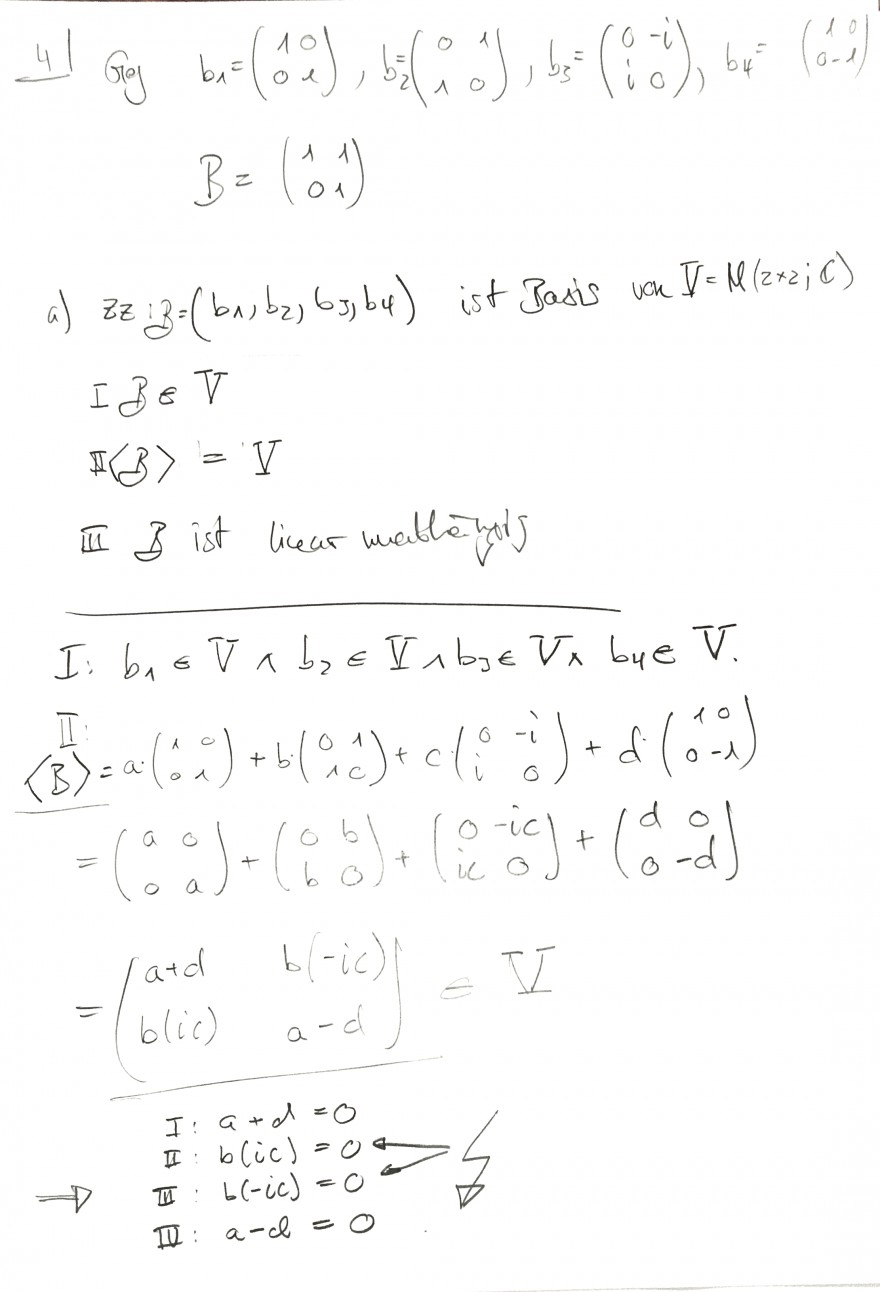 4| Geg b1=(1 0 0 1), b2=(0 1 1 0), b3=(0 -i i 0), b4=(1 0 0 -1)
B= (1 1 0 1)
a) ZZ: B=(b1, b2, b3, b4) ist Basis von V=M(2×2; C)
I B ∈ V
II <B> = V
III B ist linear unabhängig
I: b1 ∈ V ∧ b2 ∈ V ∧ b3 ∈ V ∧ b4 ∈ V.
II:
<B> = a·(1 0 0 1) + b·(0 1 1 0) + c·(0 -i i 0) + d·(1 0 0 -1)
= (a 0 0 a) + (0 b b 0) + (0 -ic ic 0) + (d 0 0 -d)
= (a+d b(-ic) b(ic) a-d) ∈ V
I: a+d = 0
II: b(ic) = 0
⇒ III: b(-ic) = 0
IV: a-d = 0